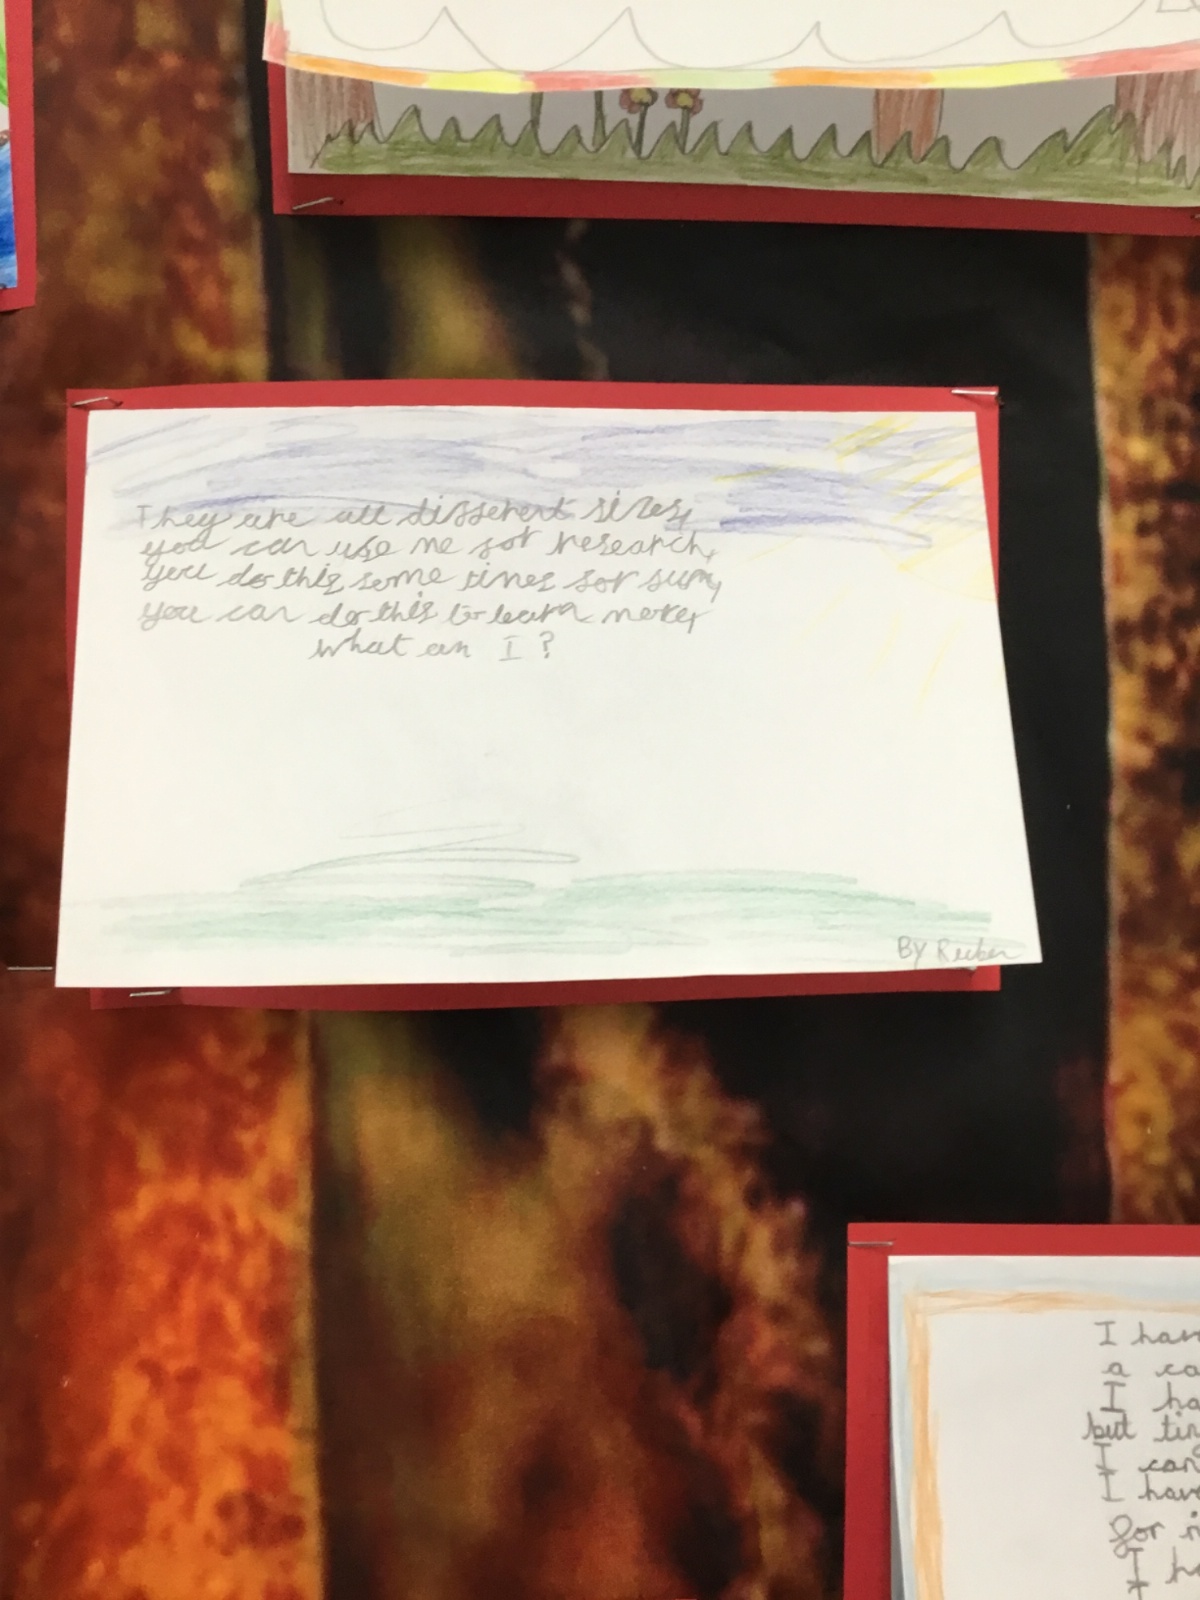 They are all different sizes,
you can use me for research,
you do this some times for fun,
you can do this to learn more,
what am I?
By Reuben
I hav
a ca
I ha
but tin
I can
I have
for
I ha